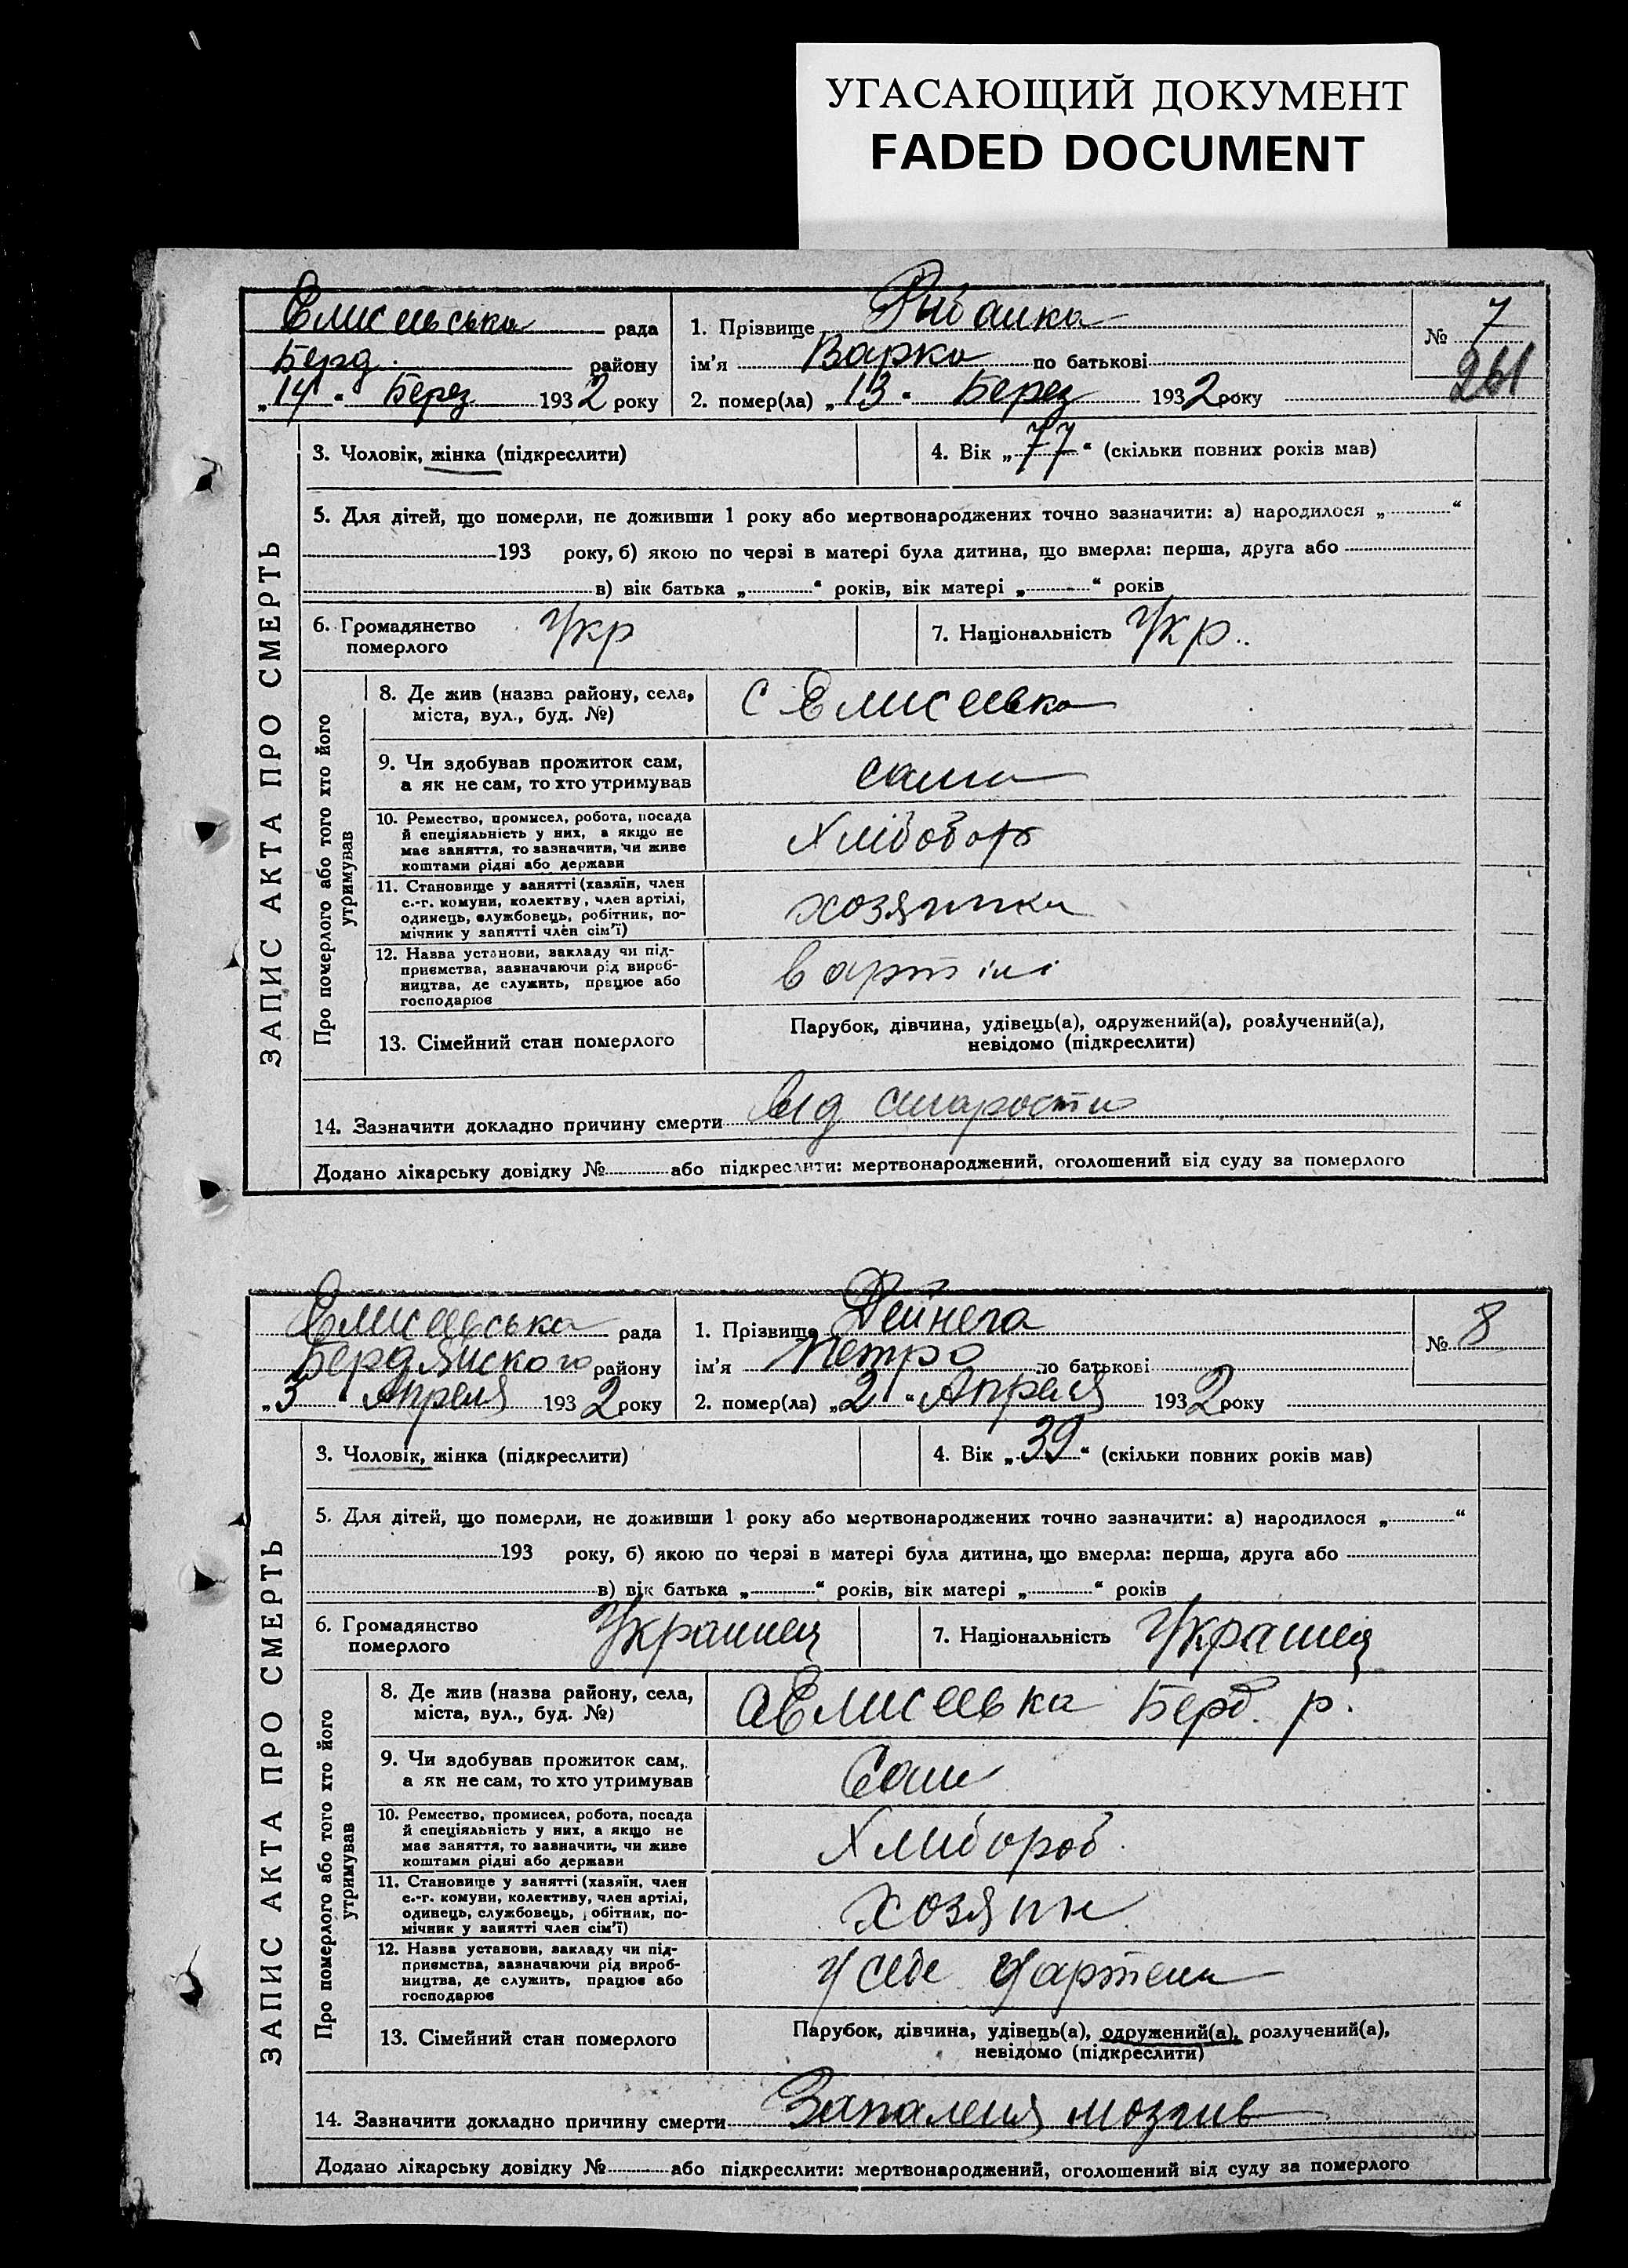 УГАСАЮЩИЙ ДОКУМЕНТ
FADED DOCUMENT
Елисеевська рада
Берд. району
„14“ Берез 1932 року
1. Прізвище Рибалка
ім'я Варка по батькові
2. помер(ла) „13“ Берез 1932 року
№ 7
261
ЗАПИС АКТА ПРО СМЕРТЬ
3. Чоловік, жінка (підкреслити)
4. Вік „77“ (скільки повних років мав)
5. Для дітей, що померли, не доживши 1 року або мертвонароджених точно зазначити: а) народилося „ “
193 року, б) якою по черзі в матері була дитина, що вмерла: перша, друга або
в) вік батька „ “ років, вік матері „ “ років
6. Громадянство
померлого
Укр
7. Національність Укр.
Про померлого або того хто його
утримував
8. Де жив (назва району, села,
міста, вул., буд. №)
с Елисеевка
9. Чи здобував прожиток сам,
а як не сам, то хто утримував
сама
10. Ремество, промисел, робота, посада
й спеціяльність у них, а якщо не
має заняття, то зазначити, чи живе
коштами рідні або держави
11. Становище у занятті (хазяїн, член
с.-г. комуни, колектву, член артілі,
одинець, службовець, робітник, по-
мічник у занятті член сім'ї)
хозяйка
12. Назва установи, закладу чи під-
приємства, зазначаючи рід вироб-
ництва, де служить, працює або
господарює
в артілі
13. Сімейний стан померлого
Парубок, дівчина, удівець(а), одружений(а), розлучений(а),
невідомо (підкреслити)
14. Зазначити докладно причину смерти Від старости
Додано лікарську довідку № або підкреслити: мертвонароджений, оголошений від суду за померлого
Елисеевська рада
Бердянского району
„3“ Апреля 1932 року
1. Прізвище Дейнега
ім'я Петро по батькові
2. помер(ла) „2“ Апреля 1932 року
№ 8
ЗАПИС АКТА ПРО СМЕРТЬ
3. Чоловік, жінка (підкреслити)
4. Вік „39“ (скільки повних років мав)
5. Для дітей, що померли, не доживши 1 року або мертвонароджених точно зазначити: а) народилося „ “
193 року, б) якою по черзі в матері була дитина, що вмерла: перша, друга або
в) вік батька „ “ років, вік матері „ “ років
6. Громадянство
померлого
Украинец
7. Національність Украинец
Про померлого або того хто його
утримував
8. Де жив (назва району, села,
міста, вул., буд. №)
с Елисеевка Берд. р.
9. Чи здобував прожиток сам,
а як не сам, то хто утримував
Сам
10. Ремество, промисел, робота, посада
й спеціяльність у них, а якщо не
має заняття, то зазначити, чи живе
коштами рідні або держави
Хлибороб
11. Становище у занятті (хазяїн, член
с.-г. комуни, колективу, член артілі,
одинець, службовець, робітник, по-
мічник у занятті член сім'ї)
хозяин
12. Назва установи, закладу чи під-
приємства, зазначаючи рід вироб-
ництва, де служить, працює або
господарює
У себе У артели
13. Сімейний стан померлого
Парубок, дівчина, удівець(а), одружений(а), розлучений(а),
невідомо (підкреслити)
14. Зазначити докладно причину смерти Запаленя мозгив
Додано лікарську довідку № або підкреслити: мертвонароджений, оголошений від суду за померлого